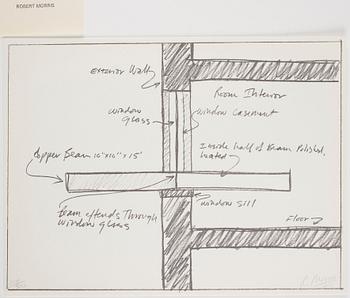 ROBERT MORRIS
Exterior Wall
Room Interior
window
glass
window casement
Inside half of Beam Polished,
heated
Copper Beam
Beam extends Through
window glass
window sill
Floor